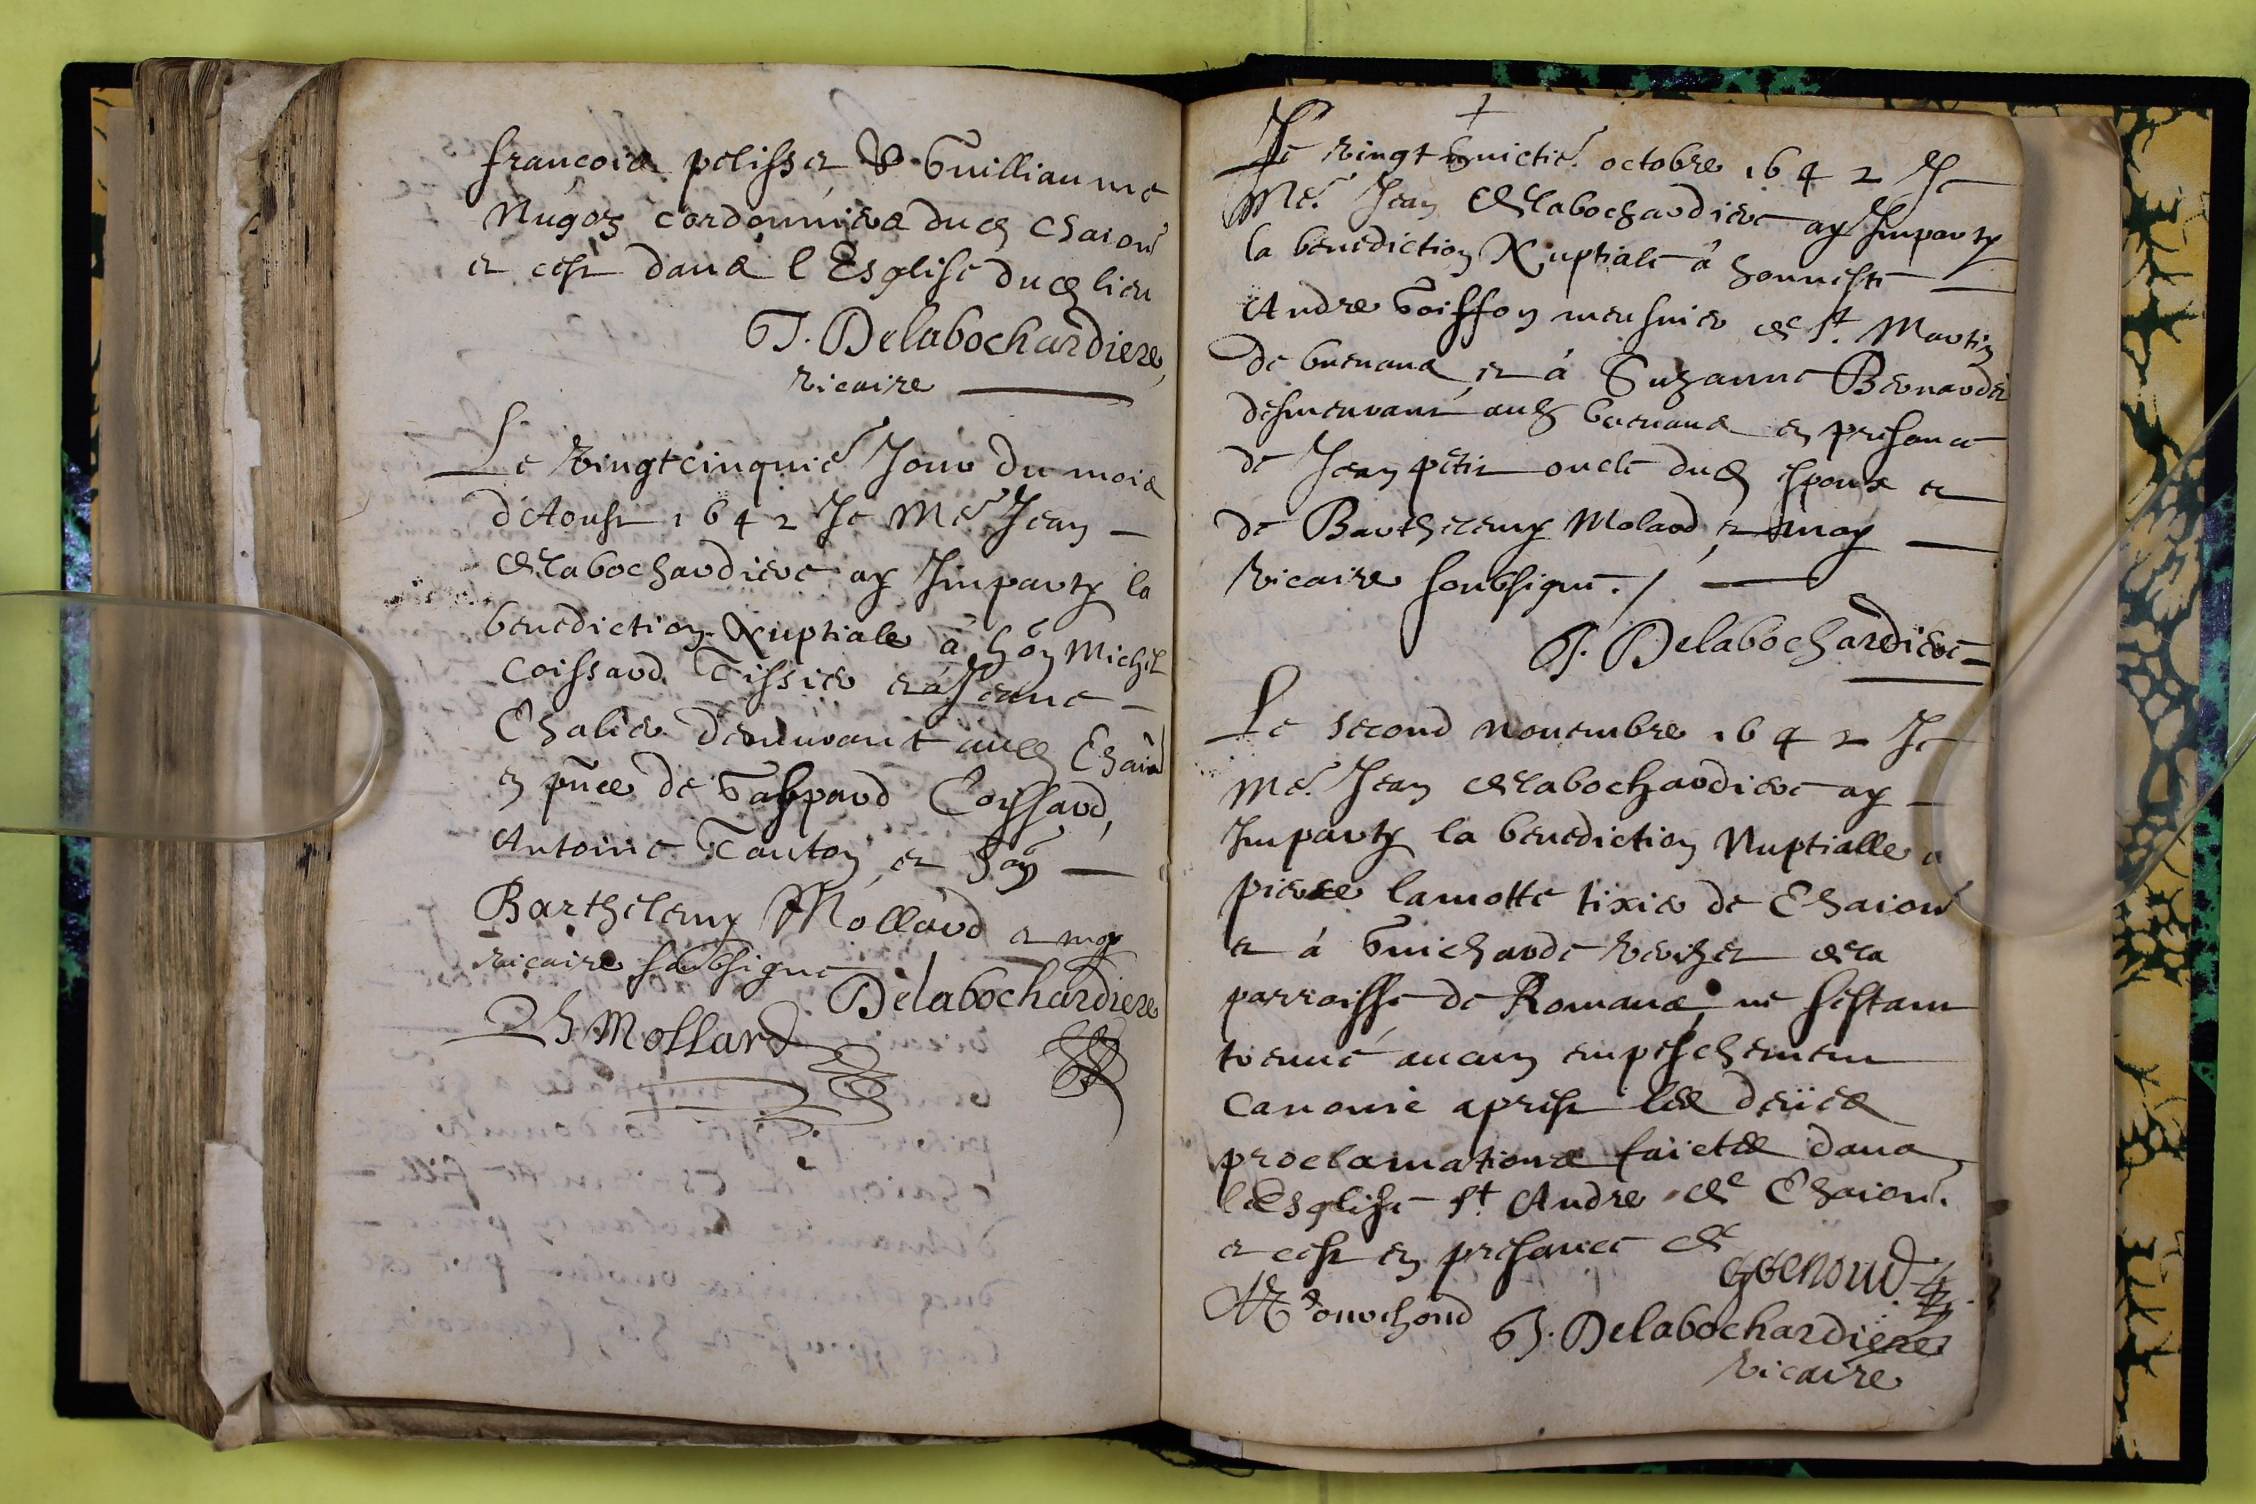 francois pelisset & Guilliaume
Nugoz cordonniers dud Chaion
et cest dans l Esglise dud lieu
J. Delabochardiere,
vicaire
Le vingtcinquie Jour du mois
d'Aoust 1642 Je Me Jean
Delabochardiere ay Imparty la
benediction Nuptiale à hon Michel
Coissard Tissier et à Jeanne
Chalier demeurant aud
en pnce de Gaspard Coissard,
Antoine Tanton et hon
Barthelemy Mollard et moy
vicaire soubsigne
Delabochardiere
Mollard
Le vingt huictie octobre 1642 Je
Me Jean Delabochardiere ay Imparty
la benediction Nuptiale à honneste
Andre Goisson meusnier de St. Martin
de buenans et à Suzanne Bernardet
desmeurant aud buenans en presance
de Jean petit oncle dud espoux et
de Barthelemy Molard et moy
vicaire soubsigne. /
J. Delabochardiere
Le second novembre 1642 Je
Me Jean Delabochardiere ay
Imparty la benediction Nuptialle a
pierre lamotte tixier de Chaion
et à Guicharde Verizet de la
parroisse de Romans, ne sestant
trouué aucun empeschement
canonic apres les deües
proclamations faictes dans
l'Esglise St Andre de Chaion.
et cest en presance de
Genoud
J. Delabochardiere
vicaire